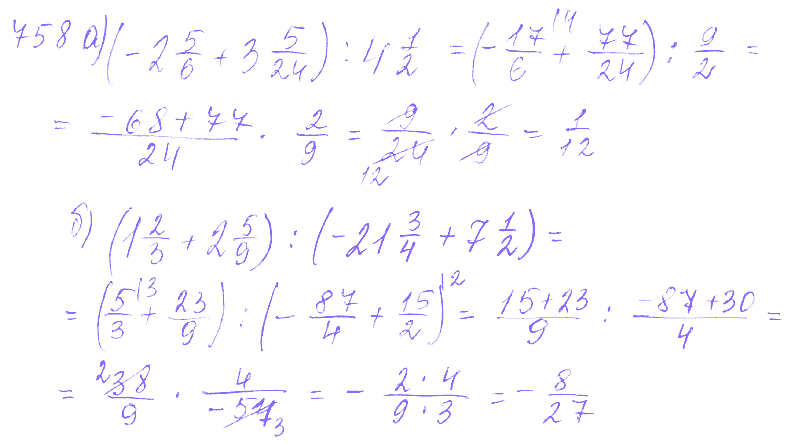 758 а) (-2 5/6 + 3 5/24) : 4 1/2 = (-17/6 |4 + 77/24) : 9/2 =
= (-68+77)/24 · 2/9 = 9/24 12 · 2/9 = 1/12
б) (1 2/3 + 2 5/9) : (-21 3/4 + 7 1/2) =
= (5/3 |3 + 23/9) : (-87/4 + 15/2) |2 = (15+23)/9 : (-87+30)/4 =
= 2 38/9 · 4/-57 3 = - (2·4)/(9·3) = - 8/27